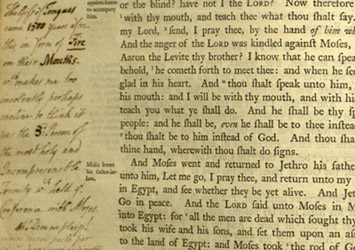 The Gift of Tongues
came 1500 years after
this in form of Fire
on their Mouths.
makes me too
modestly perhaps
to think it
the 3d Person of
the most holy and
Incomprehensible
Trinity w held y
Conference with Moses.
appoint Aaron
to accompany
him.
Moses leaves
his father-in-
law.
or the blind? have not I the LORD? Now therefore
with thy mouth, and teach thee what thou shalt say.
my Lord, send, I pray thee, by the hand of him w
And the anger of the LORD was kindled against Moses,
Aaron the Levite thy brother? I know that he can spea
behold, he cometh forth to meet thee: and when he see
glad in his heart. And thou shalt speak unto him,
his mouth: and I will be with thy mouth, and with hi
teach you what ye shall do. And he shall be thy s
people: and he shall be, even he shall be to thee instea
thou shalt be to him instead of God. And thou sha
thine hand, wherewith thou shalt do signs.
And Moses went and returned to Jethro his father
unto him, Let me go, I pray thee, and return unto my
in Egypt, and see whether they be yet alive. And Je
Go in peace. And the LORD said unto Moses in M
into Egypt: for all the men are dead which sought thy
took his wife and his sons, and set them upon an a
to the land of Egypt: and Moses took the rod of